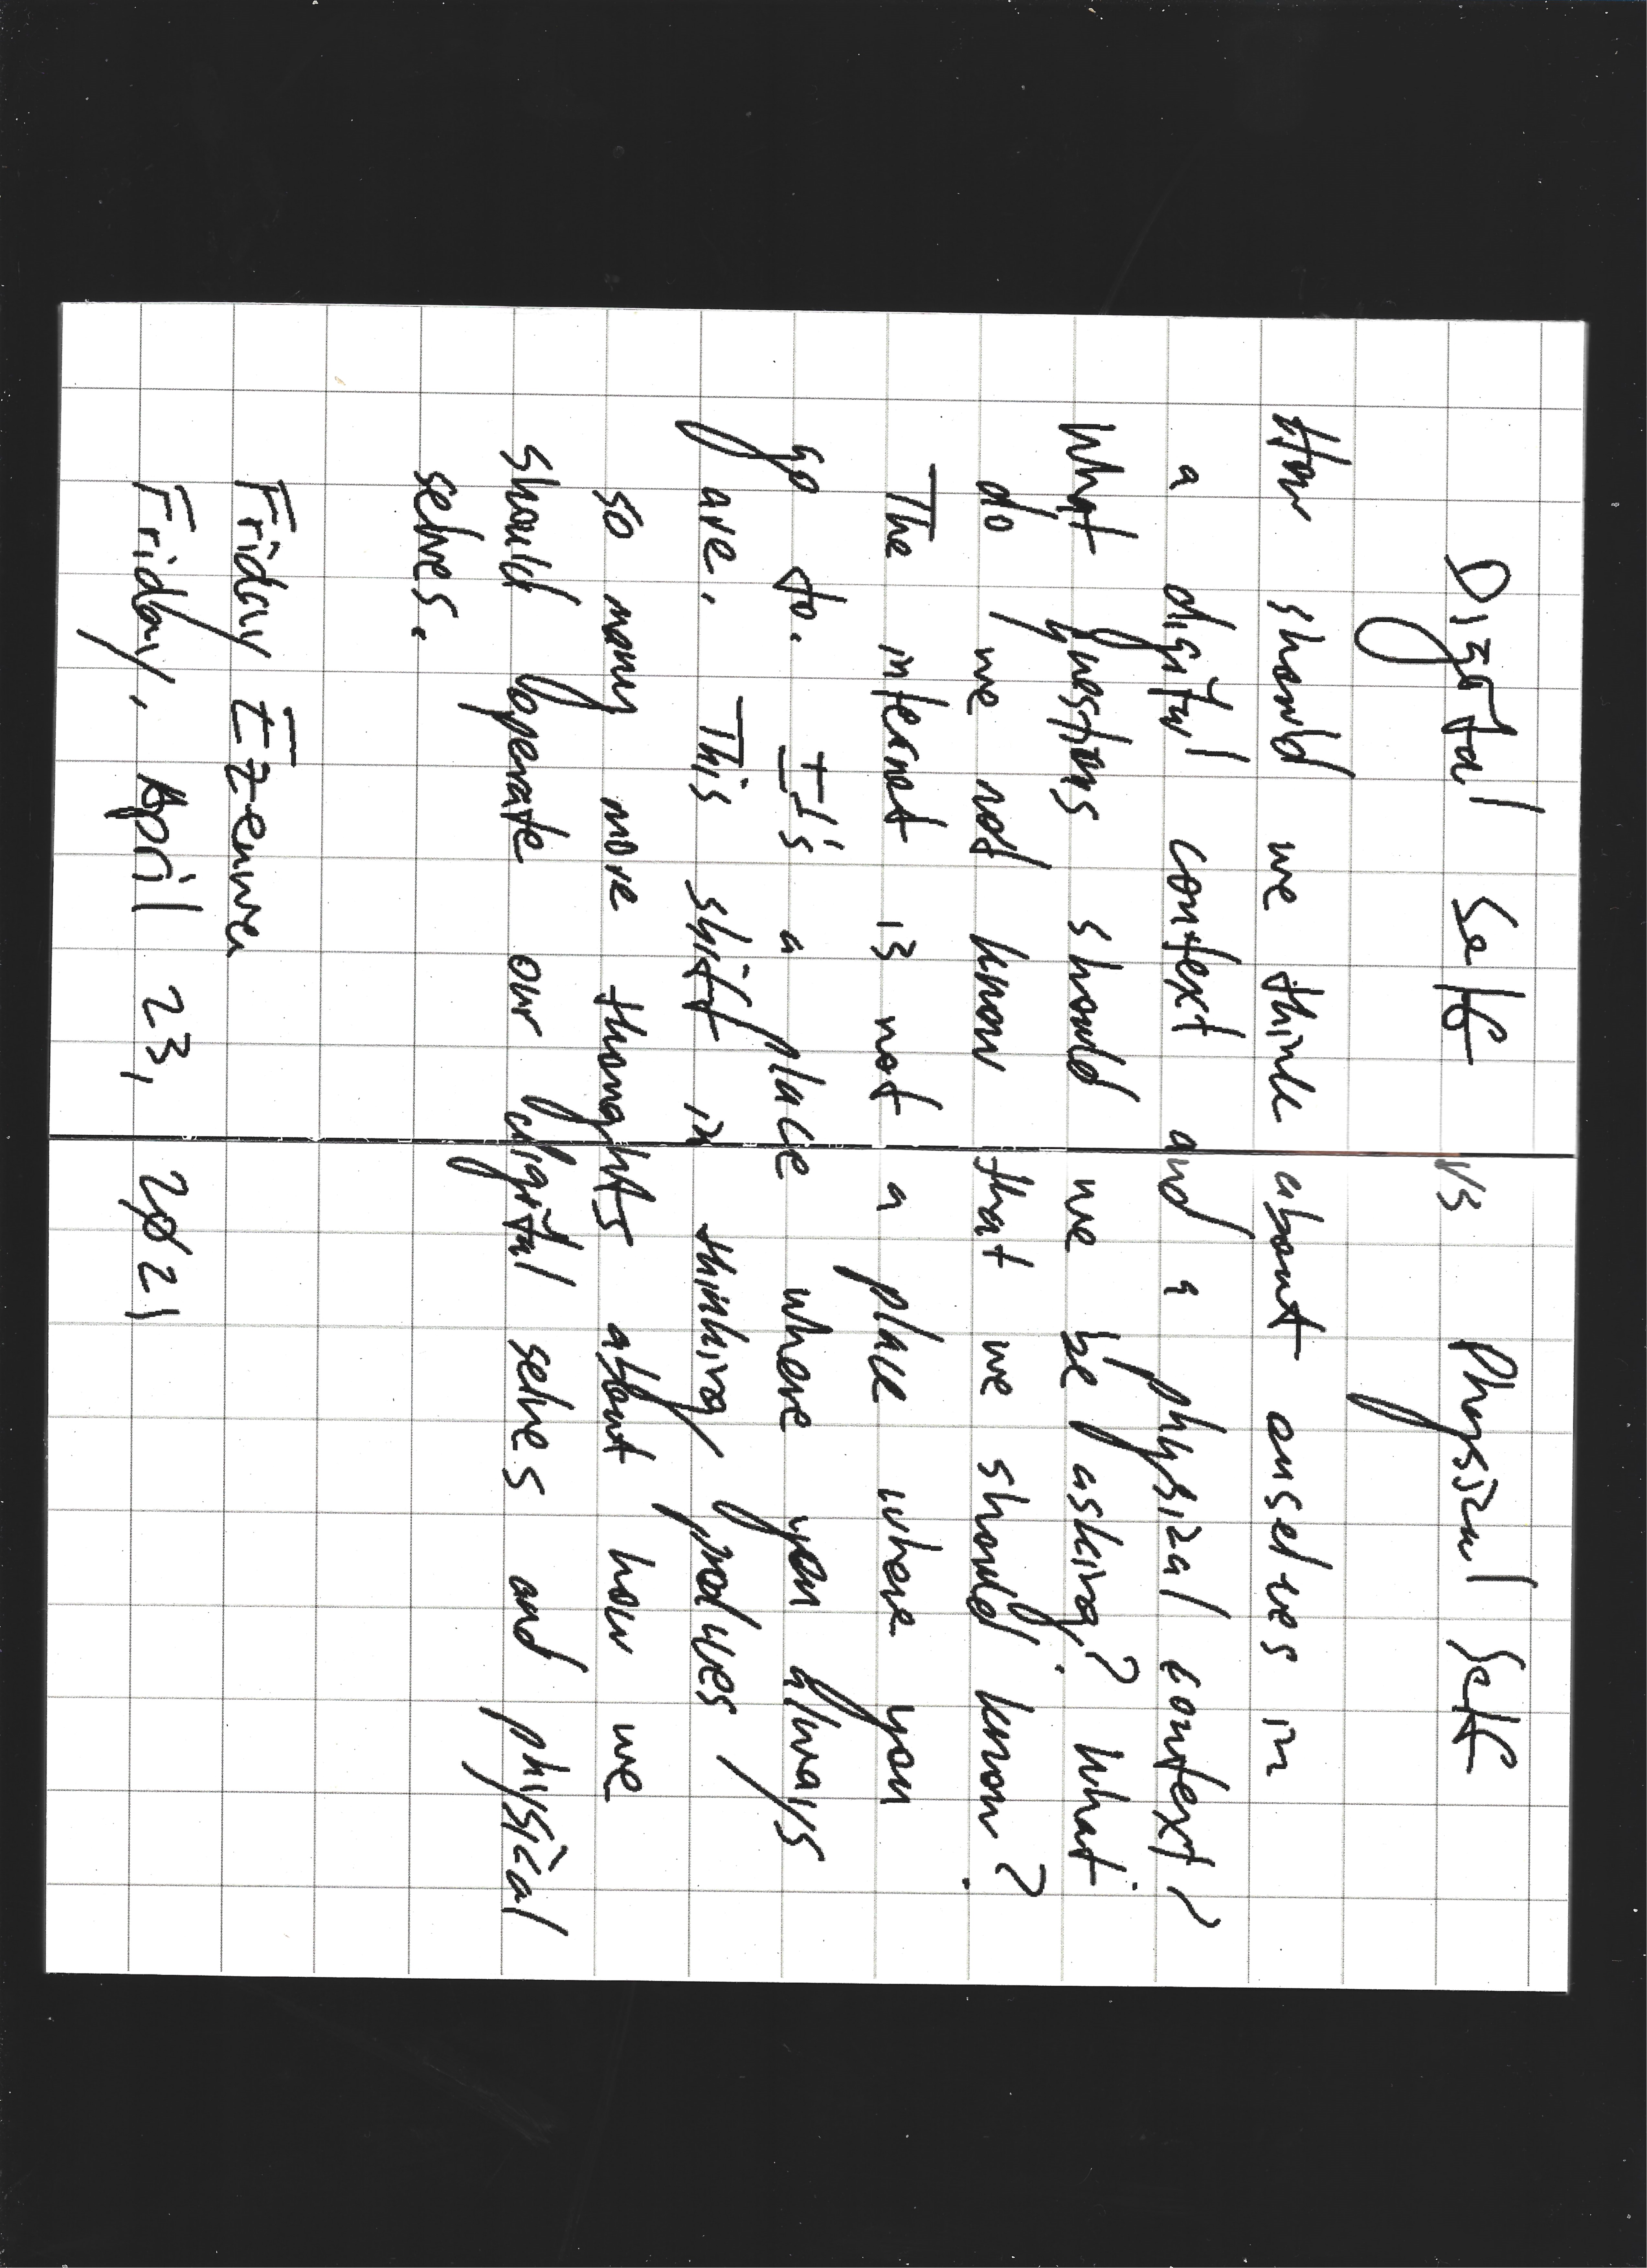 Digital Self vs Physical Self
How should we think about ourselves in
a digital context and a physical context?
What questions should we be asking? What
do we not know that we should know?
The internet is not a place where you
go to. It's a place where you always
are. This shift in thinking produces
so many more thoughts about how we
should operate our digital selves and physical
selves.
Friday Ezenwa
Friday, April 23, 2021